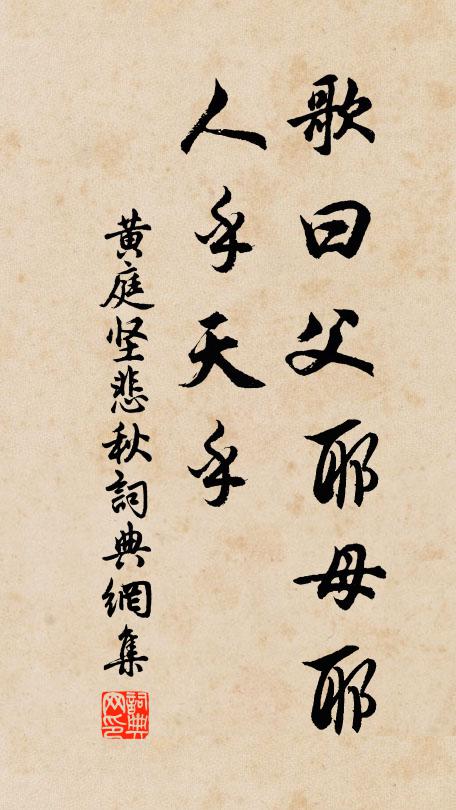 歌曰父耶母耶
人乎天乎
黄庭坚悲秋詞典網集
詞典
网印